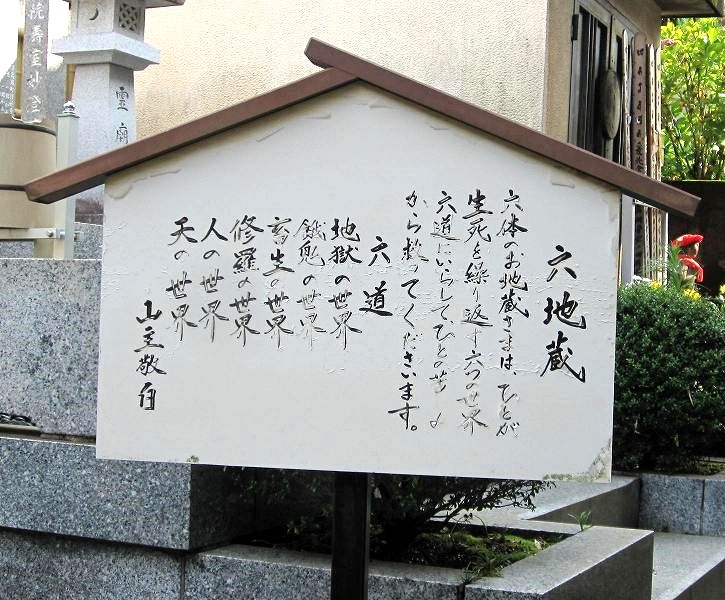 六地蔵
六体のお地蔵さまは、ひとが
生死を繰り返す六つの世界
六道にいらして、ひとの苦 み
から救ってくださいます。
六道
地獄の世界
餓鬼の世界
畜生の世界
修羅の世界
人の世界
天の世界
山主敬白
霊廟